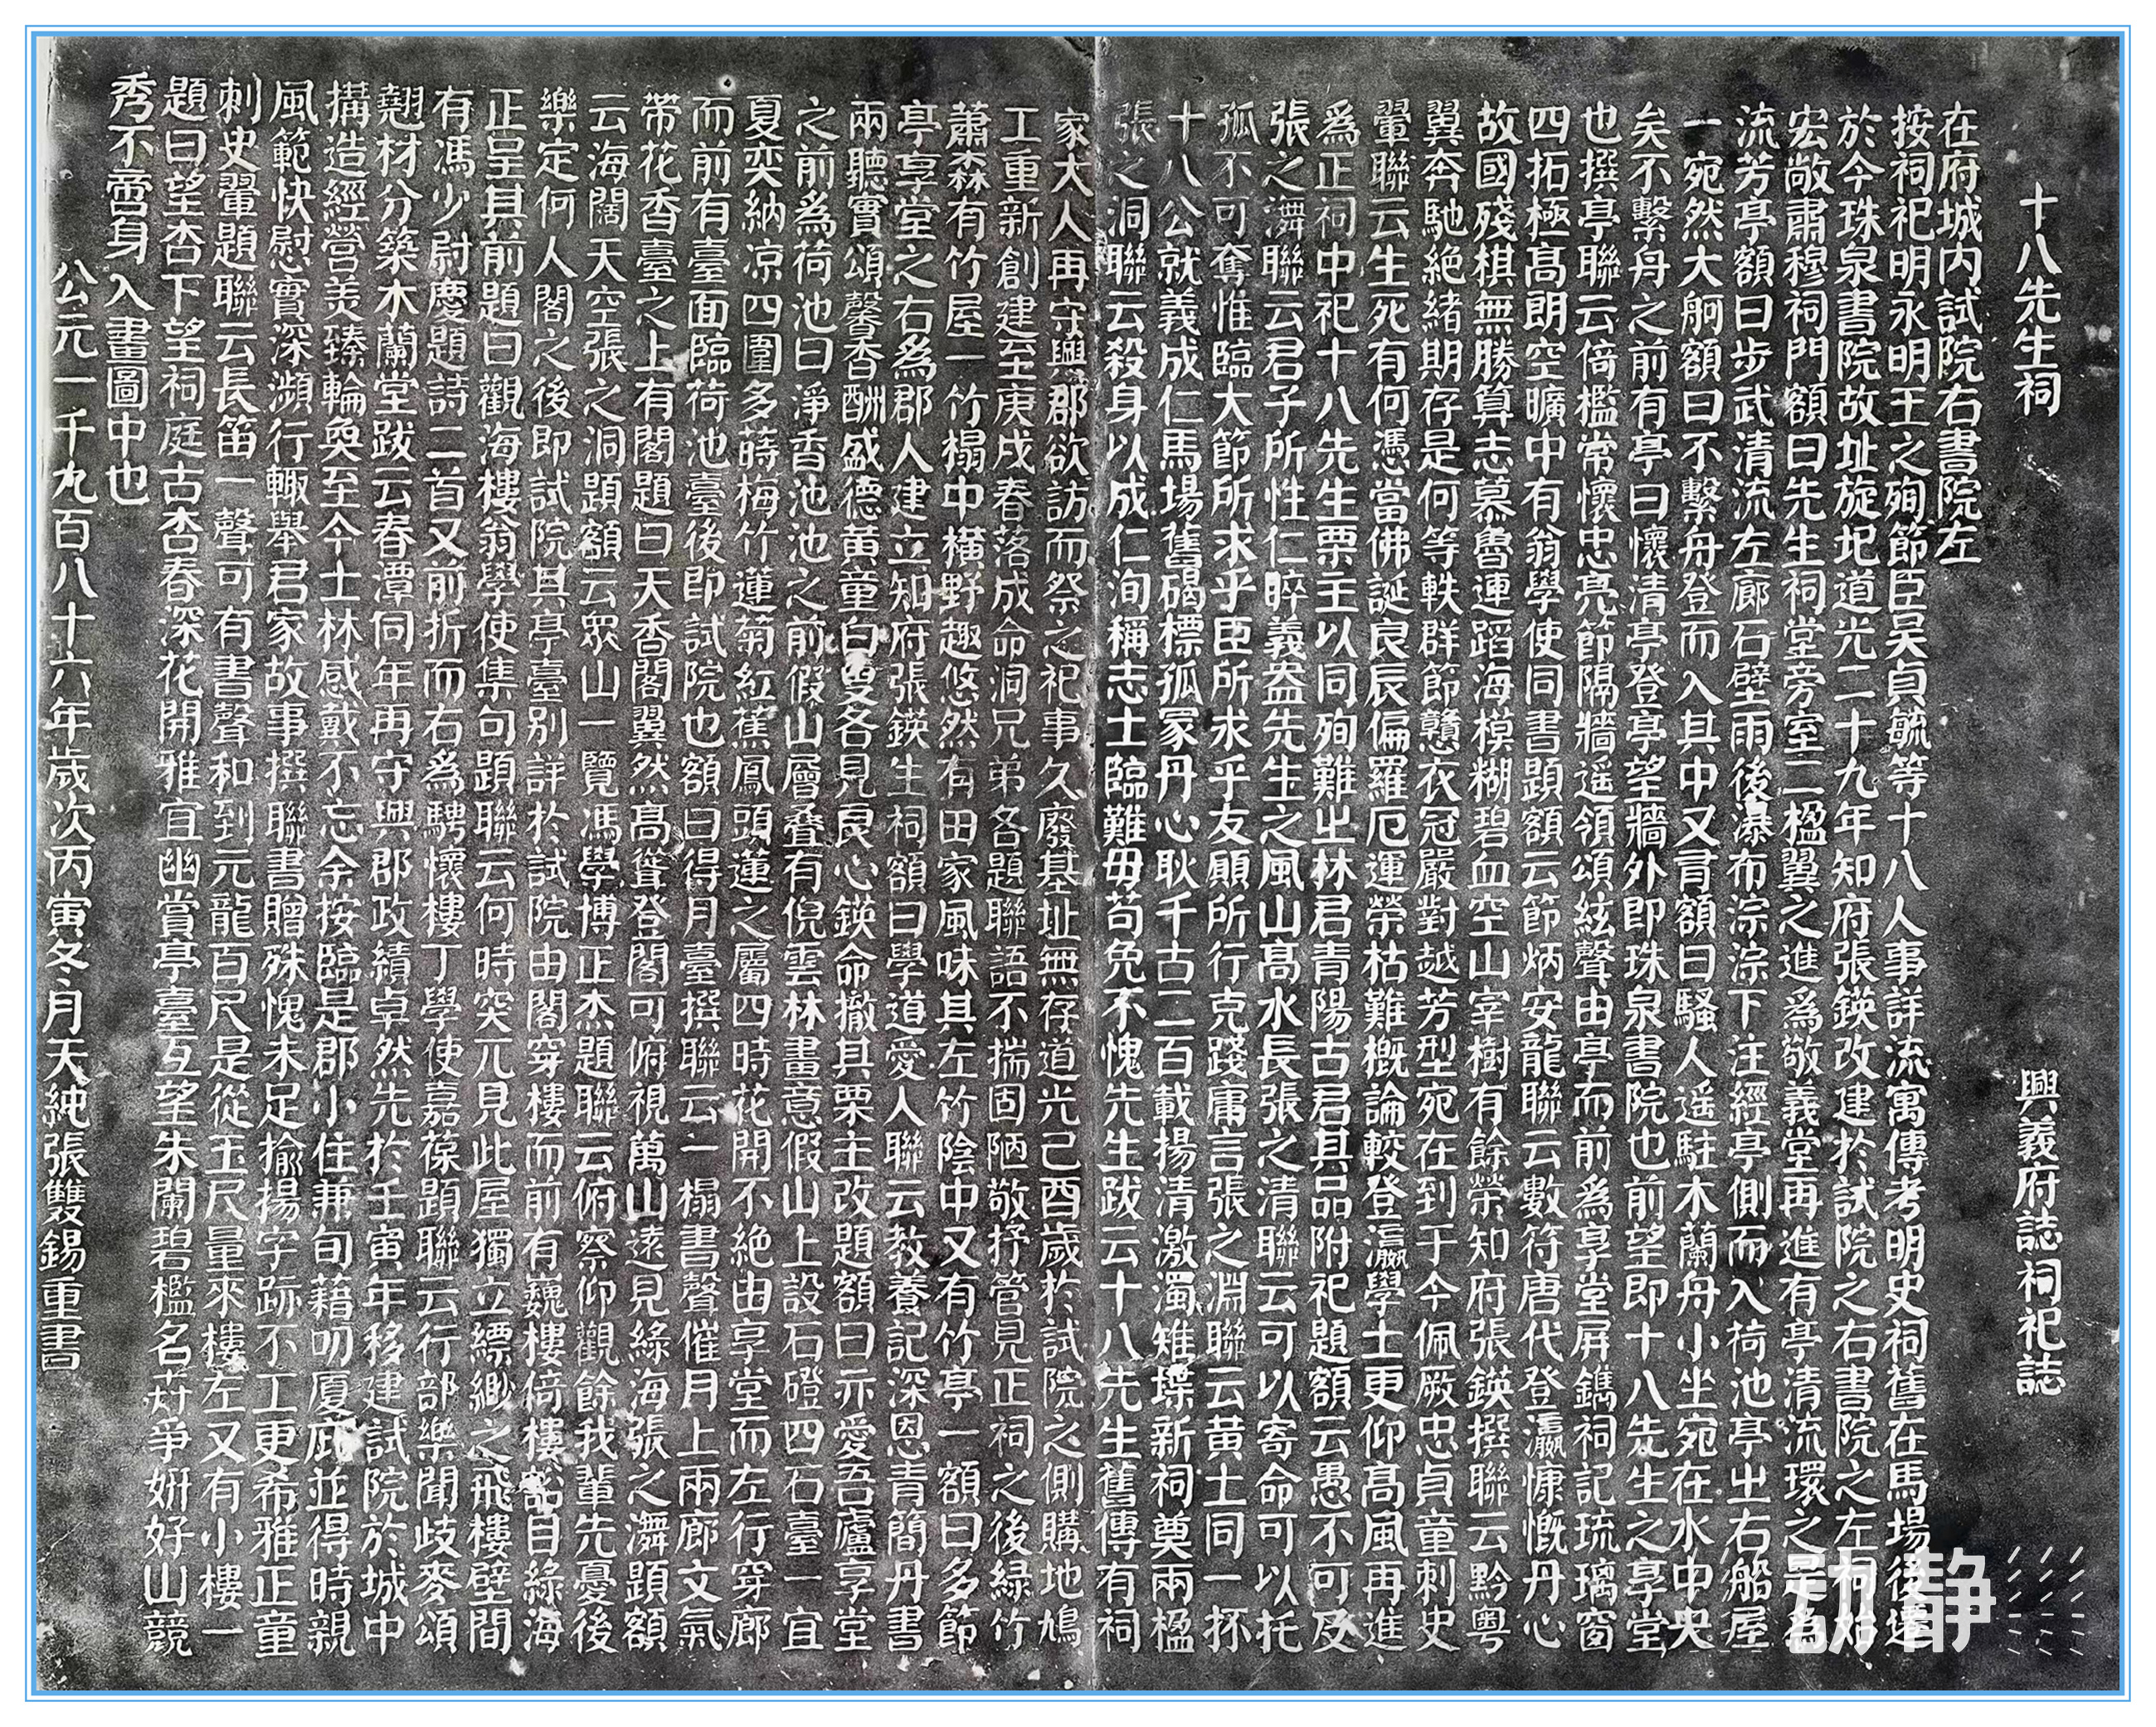 十八先生祠 興義府誌祠祀誌
在府城内試院右書院左
按祠祀明永明王之殉節臣吴貞毓等十八人事詳流寓傳考明史祠舊在馬場後遷
於今珠泉書院故址旋圯道光二十九年知府張鍈改建於試院之右書院之左祠始
宏敞肅穆祠門額曰先生祠堂旁室二楹翼之進爲敬義堂再進有亭清流環之是爲
流芳亭額曰步武清流左廊石壁雨後瀑布淙淙下注經亭側而入荷池亭㞢右船屋
一宛然大舸額曰不繫舟登而入其中又有額曰騷人遥駐木蘭舟小坐宛在水中央
矣不繫舟之前有亭曰懷清亭登亭望牆外即珠泉書院也前望即十八先生之享堂
也撰亭聯云倚檻常懷忠亮節隔牆遥領頌絃聲由亭而前爲享堂屏鐫祠記琉璃窗
四拓極高朗空曠中有翁學使同書題額云節炳安龍聯云數符唐代登瀛慷慨丹心
故國殘棋無勝算志慕魯連蹈海模糊碧血空山宰樹有餘榮知府張鍈撰聯云黔粤
翼奔馳絶緒期存是何等軼群節戇衣冠嚴對越芳型宛在到于今佩厥忠貞童刺史
翬聯云生死有何憑當佛誕良辰偏羅厄運榮枯難概論較登瀛學士更仰高風再進
爲正祠中祀十八先生栗主以同殉難㞢林君青陽古君其品附祀題額云愚不可及
張之澫聯云君子所性仁睟義盎先生之風山高水長張之清聯云可以寄命可以托
孤不可奪惟臨大節所求乎臣所求乎友願所行克踐庸言張之淵聯云黄土同一抔
十八公就義成仁馬場舊碣標孤冢丹心耿千古二百載揚清激濁雉堞新祠奠兩楹
張之洞聯云殺身以成仁洵稱志士臨難毋苟免不愧先生跋云十八先生舊傳有祠
家大人再守興郡欲訪而祭之祀事久廢基址無存道光己酉歲於試院之側購地鳩
工重新創建至庚戌春落成命洞兄弟各題聯語不揣固陋敬抒管見正祠之後緑竹
蕭森有竹屋一竹榻中横野趣悠然有田家風味其左竹陰中又有竹亭一額曰多節
亭享堂之右爲郡人建立知府張鍈生祠額曰學道愛人聯云教養記深恩青簡丹書
兩聽實頌馨香酬盛德黄童白叟各見良心鍈命撤其栗主改題額曰亦愛吾廬享堂
之前爲荷池曰淨香池池之前假山層叠有倪雲林畫意假山上設石磴四石臺一宜
夏奕納凉四圍多蒔梅竹蓮菊紅蕉鳳頭蓮之屬四時花開不絶由享堂而左行穿廊
而前有臺面臨荷池臺後即試院也額曰得月臺撰聯云一榻書聲催月上兩廊文氣
帶花香臺之上有閣題曰天香閣翼然高聳登閣可俯視萬山遠見緑海張之澫題額
云海闊天空張之洞題額云眾山一覽馮學博正杰題聯云俯察仰觀餘我輩先憂後
樂定何人閣之後即試院其亭臺别詳於試院由閣穿樓而前有巍樓倚樓　目緑海
正呈其前題曰觀海樓翁學使集句題聯云何時突兀見此屋獨立縹緲之飛樓壁間
有馮少尉慶題詩二首又前折而右爲騁懷樓丁學使嘉葆題聯云行部樂聞歧麥頌
翹材分築木蘭堂跋云春潭同年再守興郡政績卓然先於壬寅年移建試院於城中
搆造經營美臻輪奐至今士林感戴不忘余按臨是郡小住兼旬藉叨厦庇並得時親
風範快慰實深瀕行輙舉君家故事撰聯書贈殊愧未足揄揚字跡不工更希雅正童
刺史翬題聯云長笛一聲可有書聲和到元龍百尺是從玉尺量來樓左又有小樓一
題曰望杏下望祠庭古杏春深花開雅宜幽賞亭臺互望朱闌碧檻名葯爭妍好山競
秀不啻身入畫圖中也
公元一千九百八十六年歲次丙寅冬月天純張雙錫重書
动静